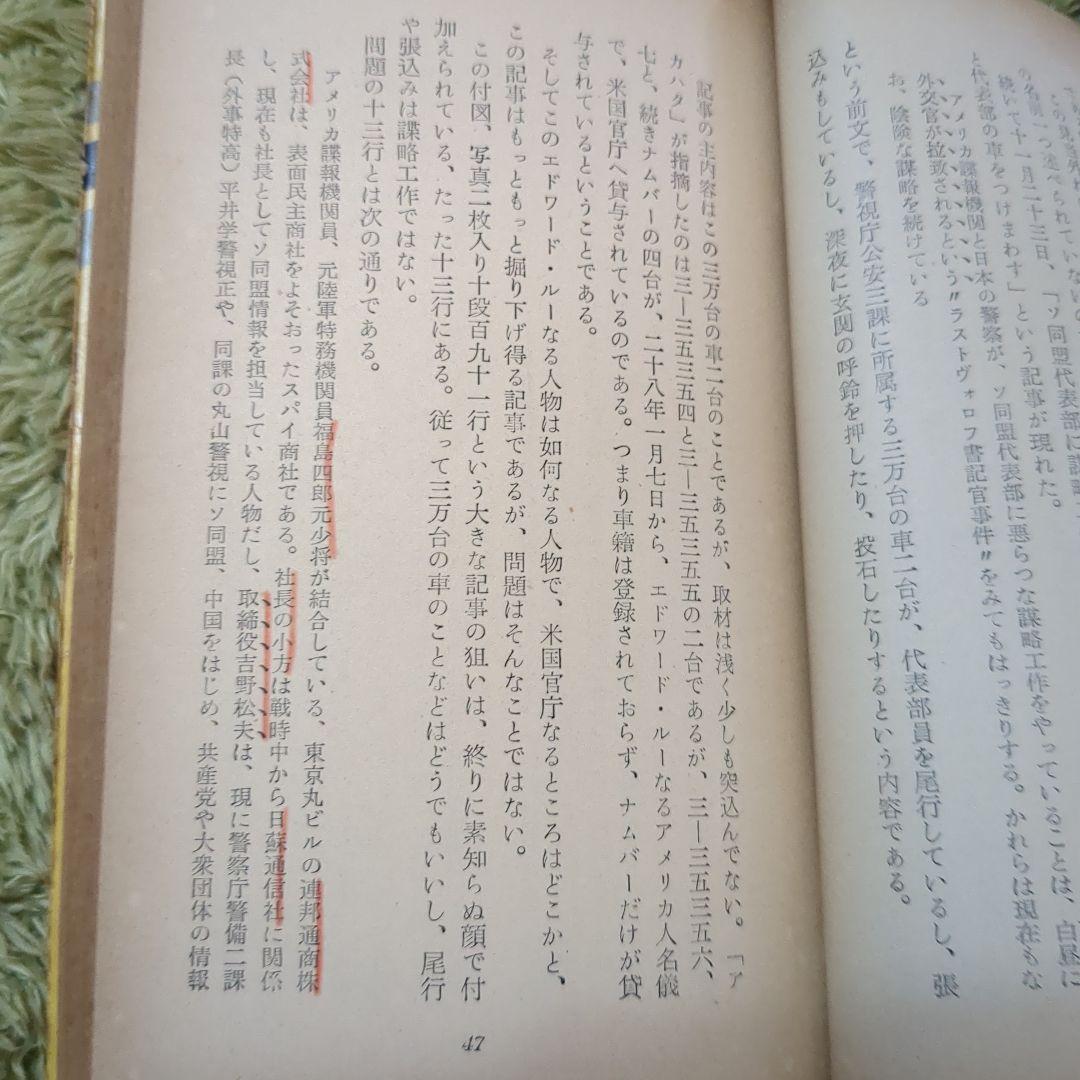 この見当外れ
の名前一つ述べられていないの
続いて十一月二十三日、「ソ同盟代表部に謀略
と代表部の車をつけまわす」という記事が現れた。
アメリカ諜報機関と日本の警察が、ソ同盟代表部に悪らつな謀略工作をやっていることは、白昼に
外交官が拉致されるという〝ラストヴォロフ書記官事件〟をみてもはっきりする。かれらは現在もな
お、陰険な謀略を続けている
という前文で、警視庁公安三課に所属する三万台の車二台が、代表部員を尾行しているし、張
込みもしているし、深夜に玄関の呼鈴を押したり、投石したりするという内容である。
記事の主内容はこの三万台の車二台のことであるが、取材は浅く少しも突込んでない。「ア
カハタ」が指摘したのは三—三五三五四と三—三五三五五の二台であるが、三—三五三五六、
七と、続きナムバーの四台が、二十八年一月七日から、エドワード・ルーなるアメリカ人名儀
で、米国官庁へ貸与されているのである。つまり車籍は登録されておらず、ナムバーだけが貸
与されているということである。
そしてこのエドワード・ルーなる人物は如何なる人物で、米国官庁なるところはどこかと、
この記事はもっともっと掘り下げ得る記事であるが、問題はそんなことではない。
この付図、写真二枚入り十段百九十一行という大きな記事の狙いは、終りに素知らぬ顔で付
加えられている、たった十三行にある。従って三万台の車のことなどはどうでもいいし、尾行
や張込みは謀略工作ではない。
問題の十三行とは次の通りである。
アメリカ諜報機関員、元陸軍特務機関員福島四郎元少将が結合している、東京丸ビルの連邦通商株
式会社は、表面民主商社をよそおったスパイ商社である。社長の小方は戦時中から日蘇通信社に関係
し、現在も社長としてソ同盟情報を担当している人物だし、取締役吉野松夫は、現に警察庁警備二課
長（外事特高）平井学警視正や、同課の丸山警視にソ同盟、中国をはじめ、共産党や大衆団体の情報
47